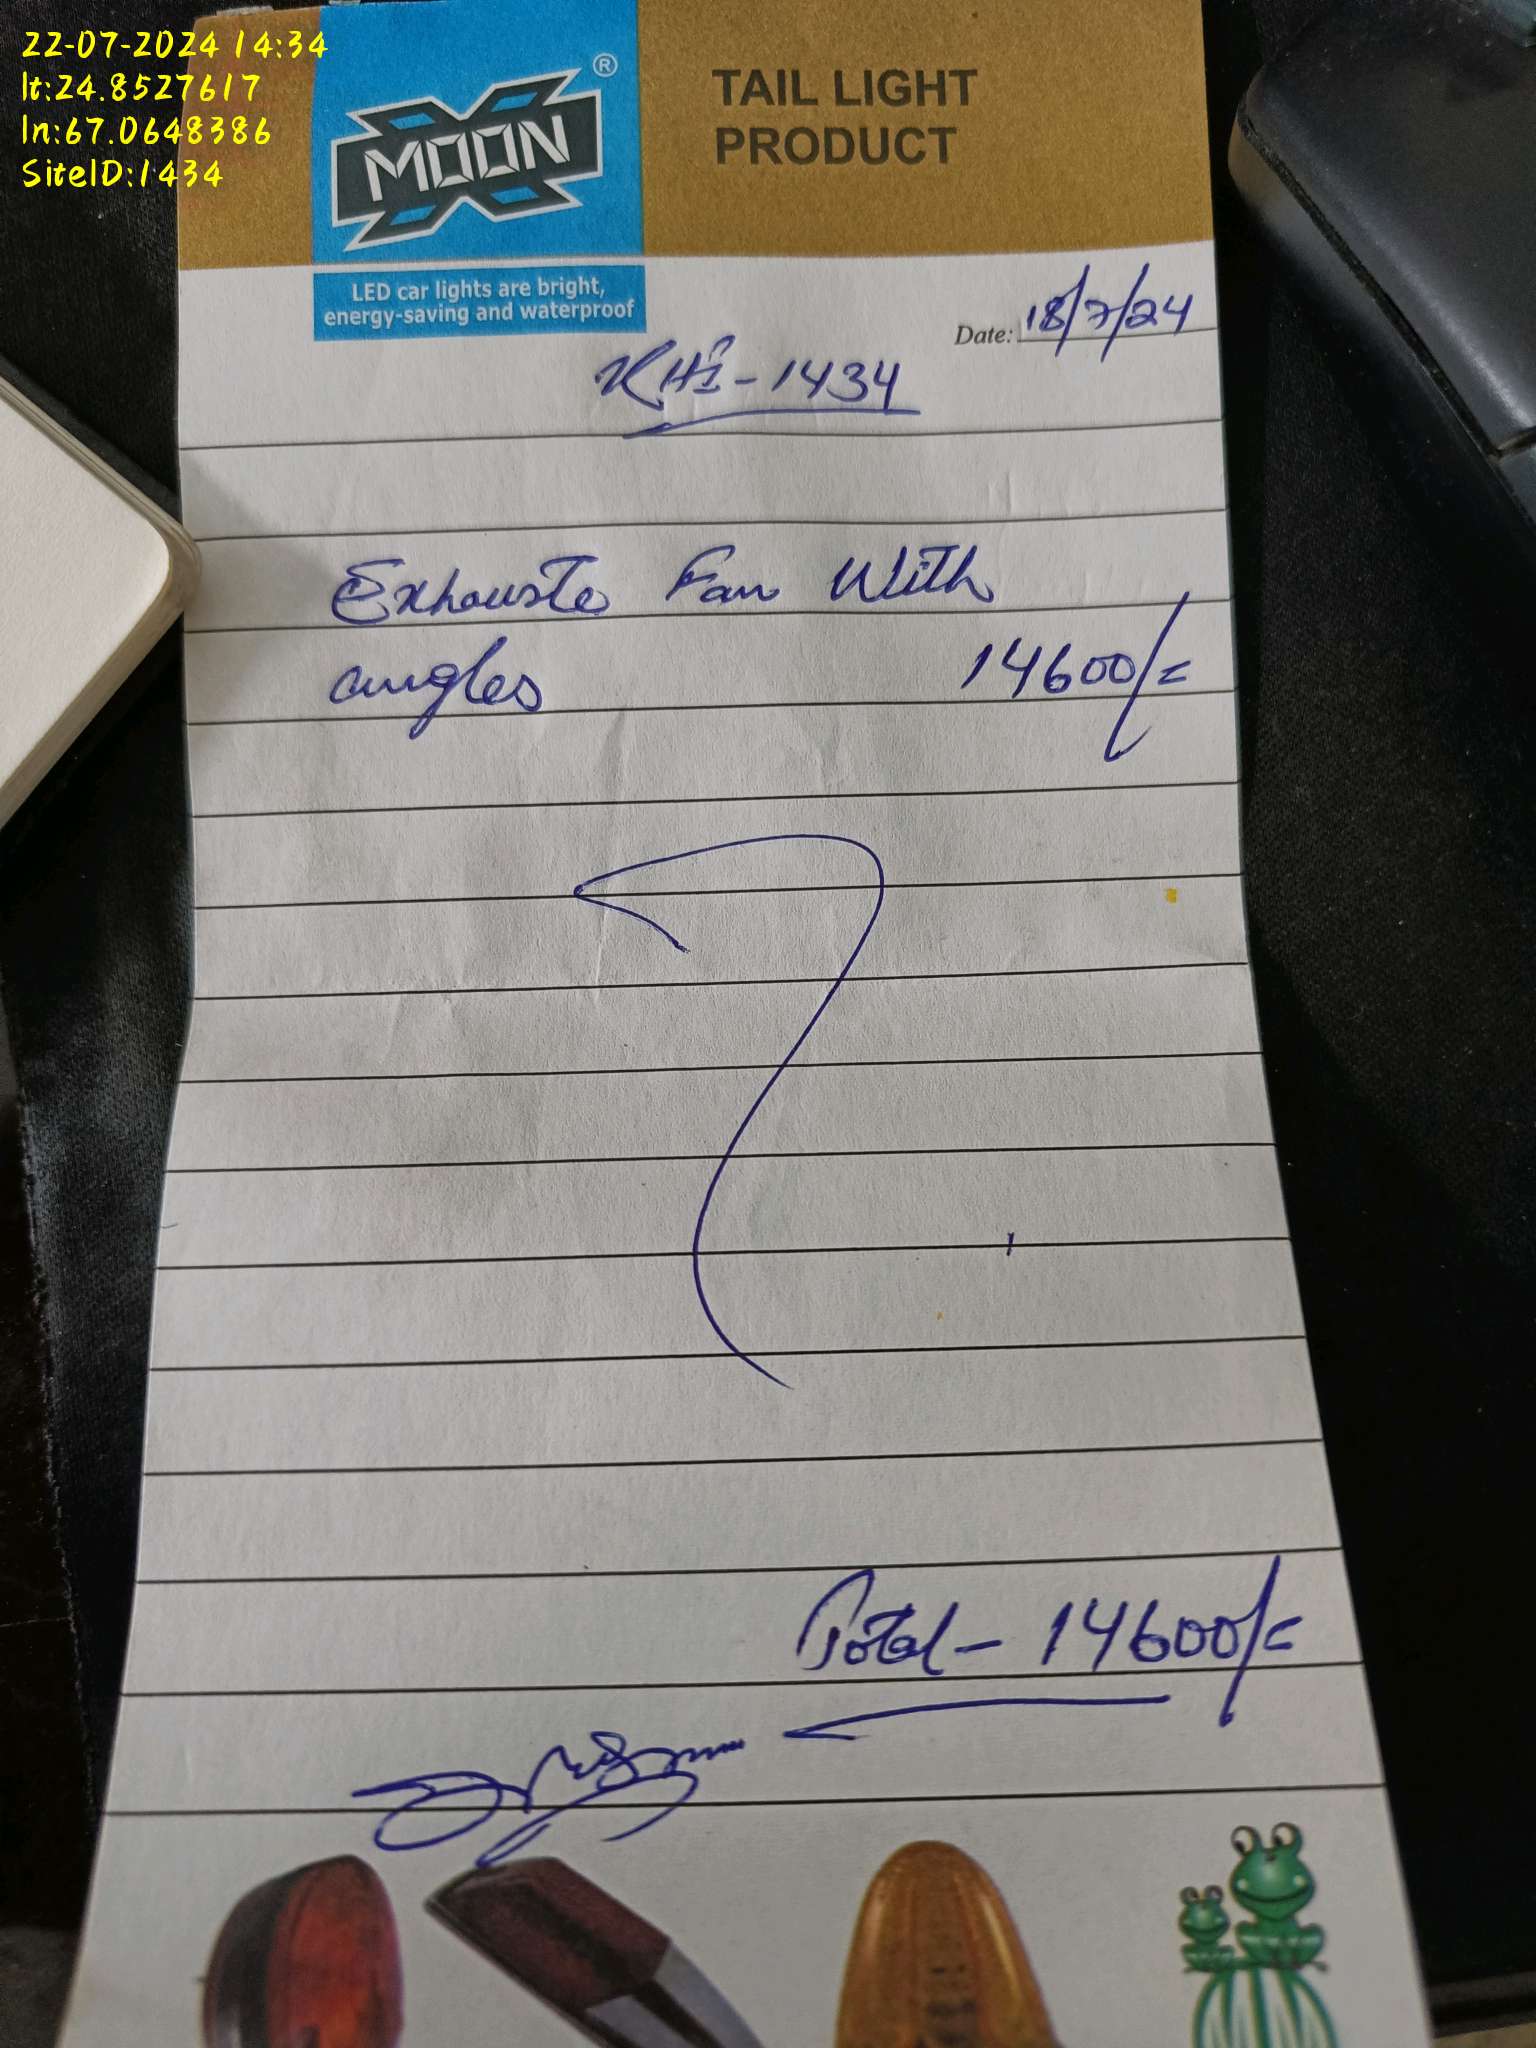 22-07-2024 14:34
lt:24.8527617
ln:67.0648386
SiteID:1434
MOON
®
TAIL LIGHT
PRODUCT
LED car lights are bright,
energy-saving and waterproof
Date: 18/7/24
KHI-1434
Exhauste Fan With
angles 14600/=
Total - 14600/=